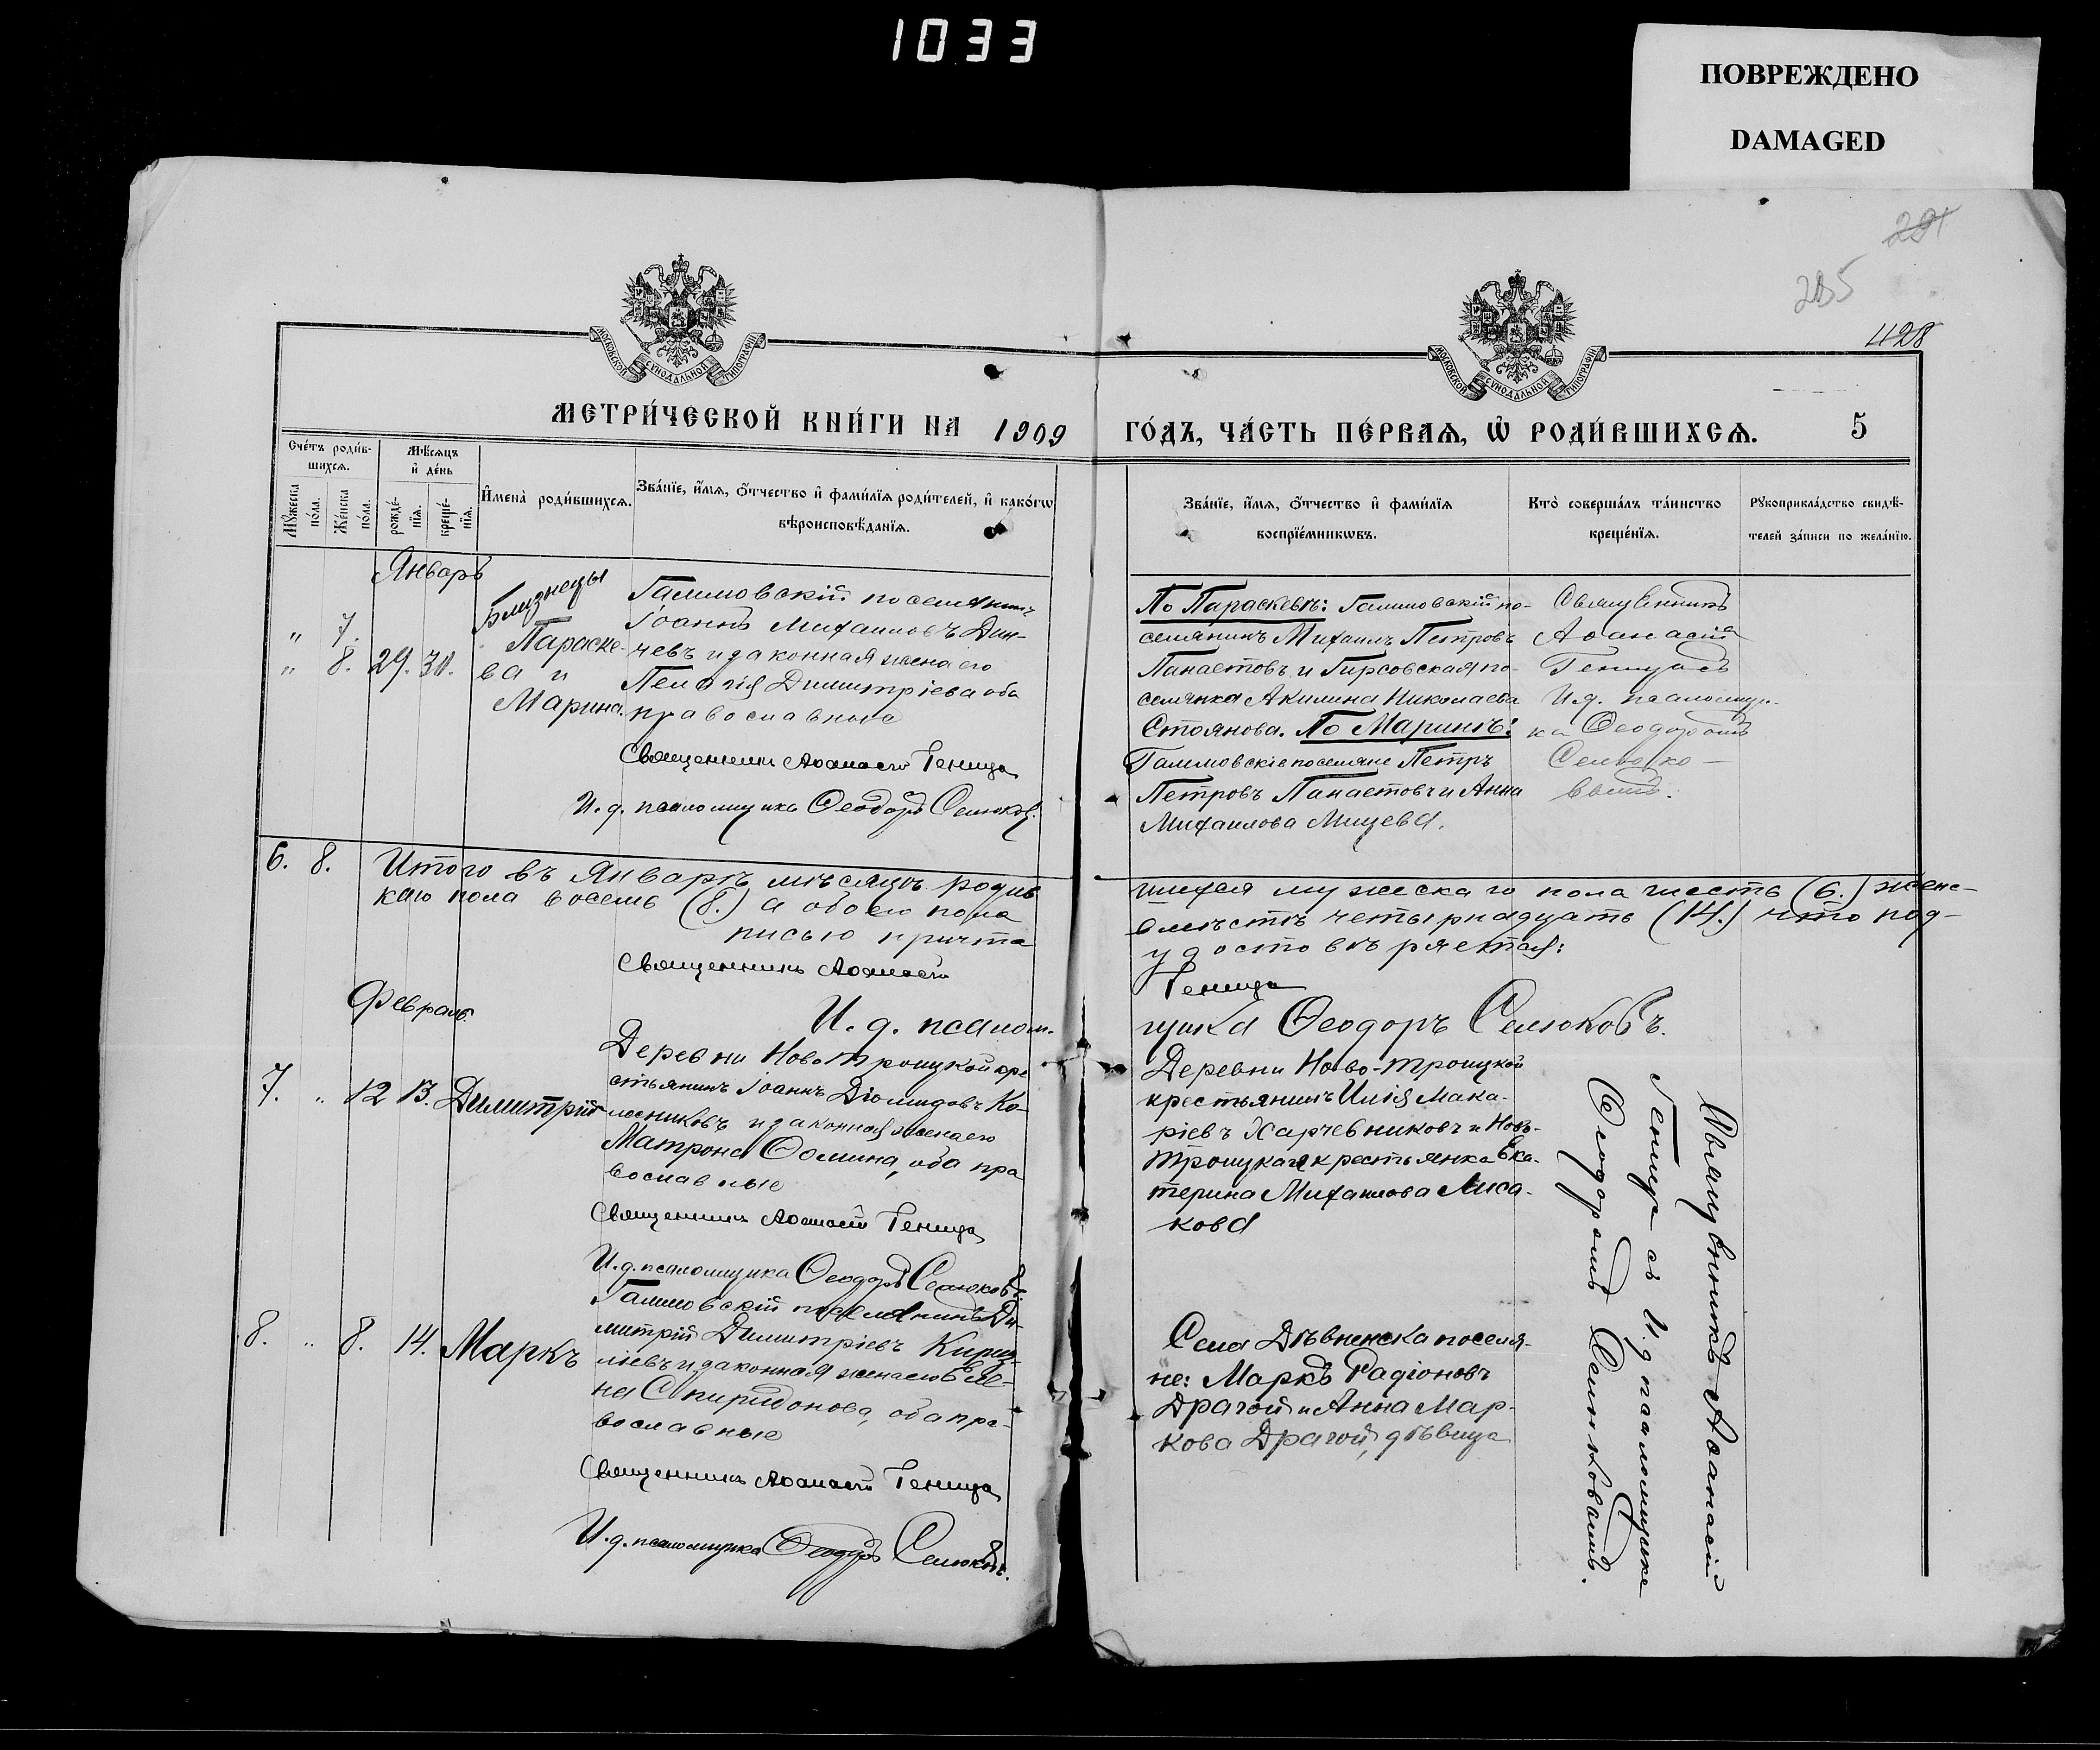 1033
ПОВРЕЖДЕНО
DAMAGED
285
428
МОСКОВСКОЙ СѴНОДАЛЬНОЙ ТИПОГРАФІИ
МОСКОВСКОЙ СѴНОДАЛЬНОЙ ТИПОГРАФІИ
МЕТРИ́ЧЕСКОЙ КНИ́ГИ НА 1909
ГО́ДЪ, ЧА́СТЬ ПЕ́РВАѦ, Ѡ҆ РОДИ́ВШИХСѦ. 5
Сче́тъ роди́в-
шихсѧ.
Мꙋ́жеска
по́ла.
Же́нска
по́ла.
Мѣ́сѧцъ
и҆ де́нь
рожде́-
нїѧ.
креще́-
нїѧ.
И҆мена̀ роди́вшихсѧ.
Зва́нїе, и҆́мѧ, ѻ҆́тчество и҆ фами́лїѧ роди́телей, и҆ како́гѡ
вѣроисповѣ́данїѧ.
Зва́нїе, и҆́мѧ, ѻ҆́тчество и҆ фами́лїѧ
воспрїе́мникѡвъ.
Кто̀ соверша́лъ та́инство
креще́нїѧ.
Рꙋкоприкла́дство свидѣ́-
телей за́писи по жела́нїю.
Январь
„ 7.
„ 8. 29. 30.
Близнецы
Параске-
ва и
Марина.
Галицовскій поселянинъ
Іоаннъ Михаиловъ Дин-
чевъ и законная жена его
Пелагія Димитріева оба
православные
Священникъ Аѳанасій Геница
И. д. псаломщика Ѳеодоръ Селюковъ.
По Параскевѣ: Галицовскій по-
селянинъ Михаилъ Петровъ
Панаетовъ и Гирсовская по-
селянка Акилина Николаева
Стоянова. По Маринѣ:
Галицовскіе поселяне Петръ
Петровъ Панаетовъ и Анна
Михаилова Мицева.
Священникъ
Аѳанасій
Геница съ
И. д. псаломщи-
ка Ѳеодоромъ
Селюко-
вымъ.
6. 8. Итого въ Январѣ мѣсяцѣ родив
шихся мужескаго пола шесть (6.) женс-
каго пола восемь (8.) а обоего пола
вмѣстѣ четырнадцать (14.) что под-
писью причта
удостовѣряется:
Священникъ Аѳанасій
Геница
И. д. псалом-
щика Ѳеодоръ Селюковъ.
Февраль.
7. „ 12 13. Димитрій
Деревни Ново Троицкой кре
стьянинъ Іоаннъ Діомидовъ Ко-
лесниковъ и законная жена его
Матрона Ѳомина, оба пра
вославные
Священникъ Аѳанасій Геница
И. д. псаломщика Ѳеодоръ Селюковъ.
Деревни Ново-Троицкой
крестьянинъ Илія Мака-
ріевъ Харчевниковъ и Ново-
троицкая крестьянка Ека-
терина Михаилова Лиса-
кова
8. „ 8. 14. Маркъ
Галицовскій поселянинъ Ди-
митрій Димитріевъ Кириз-
ліевъ и законная жена его Еле-
на Спиридонова, оба пра-
вославные
Священникъ Аѳанасій Геница
И. д. псаломщика Ѳеодоръ Селюковъ.
Села Дѣвненска поселя-
не: Маркъ Радіоновъ
Драгой и Анна Мар-
кова Драгой, дѣвица
Священникъ Аѳанасій
Геница съ И. д. псаломщика
Ѳеодоромъ Селюковымъ.